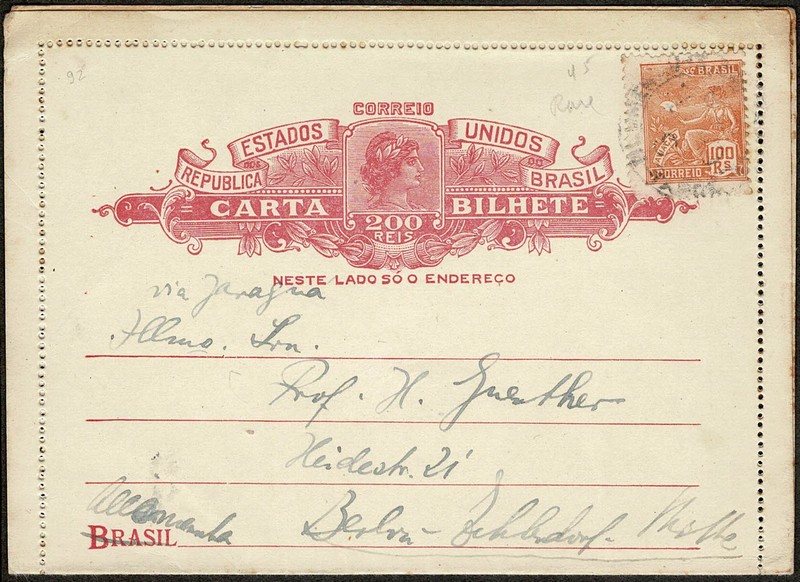 92
45
Rare
BRASIL
AVIAÇÃO
100 Rs
CORREIO
CORREIO
ESTADOS UNIDOS
REPUBLICA DOS DO BRASIL
CARTA BILHETE
200
REIS
NESTE LADO SÓ O ENDEREÇO
via Jaragua
Illmo. Snr.
Prof. H. Guenther
Heidestr. 21
Allemanha
BRASIL Berlin - Zehlendorf - Mitte